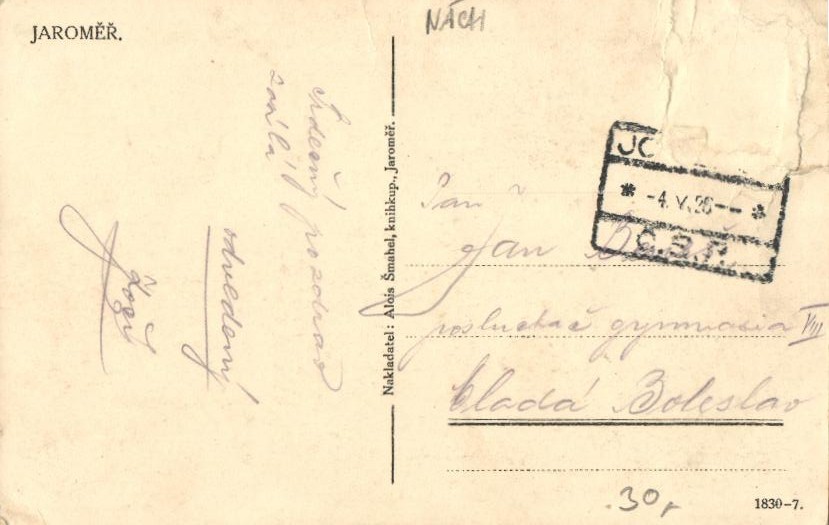 JAROMĚŘ.
NÁCH
Srdečný pozdrav
zasílá
odvedený
Nakladatel: Alois Šmahel, knihkup., Jaroměř.
JO
* -4.V.26-- *
Č.S.P.
Pan
Jan
posluchač gymnasia VIII
Mladá Boleslav
30
1830-7.